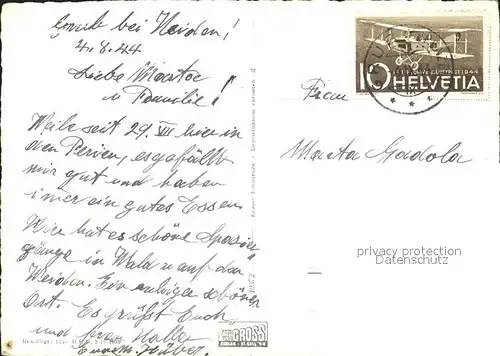 bei Heiden!
4.8.44
Liebe Marta
u Familie!
Weile seit 29. VII hier in
den Ferien, es gefällt
mir gut und haben
imer ein gutes Essen
Hier hat es schöne Spazier
gänge in Wald u auf den
Weiden. Ein ruhiger schöner
Ort. Es grüßt Euch,
und
Huber.
10
HELVETIA
Frau
Marta Gadola
privacy protection
Datenschutz
GROSS